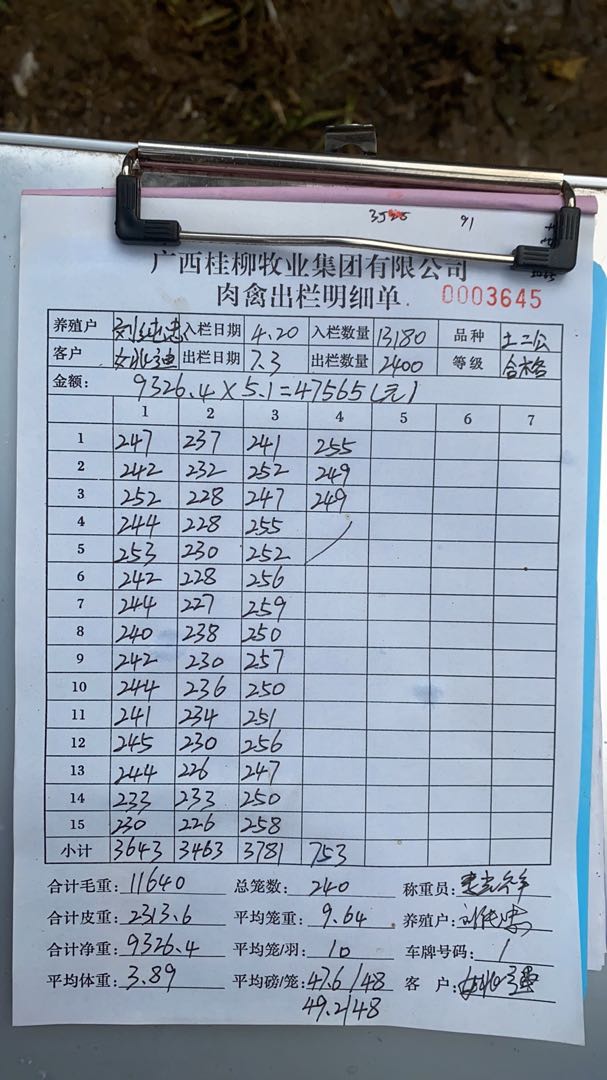 3525 91
广西桂柳牧业集团有限公司
肉禽出栏明细单. 0003645
养殖户 刘纯忠 入栏日期 4.20 入栏数量 13180 品种 土二公
客户 出栏日期 7.3 出栏数量 2400 等级 合格
金额: 9326.4×5.1=47565(元)
1 2 3 4 5 6 7
1 247 237 241 255
2 242 232 252 249
3 252 228 247 249
4 244 228 255
5 253 230 252
6 242 228 256
7 244 227 259
8 240 238 250
9 242 230 257
10 244 236 250
11 241 234 251
12 245 230 256
13 244 226 247
14 233 233 250
15 230 226 258
小计 3643 3463 3781 753
合计毛重: 11640 总笼数: 240 称重员:
合计皮重: 2313.6 平均笼重: 9.64 养殖户: 刘纯忠
合计净重: 9326.4 平均笼/羽: 10 车牌号码: 1
平均体重: 3.89 平均磅/笼: 47.6/48 客 户:
49.2/48